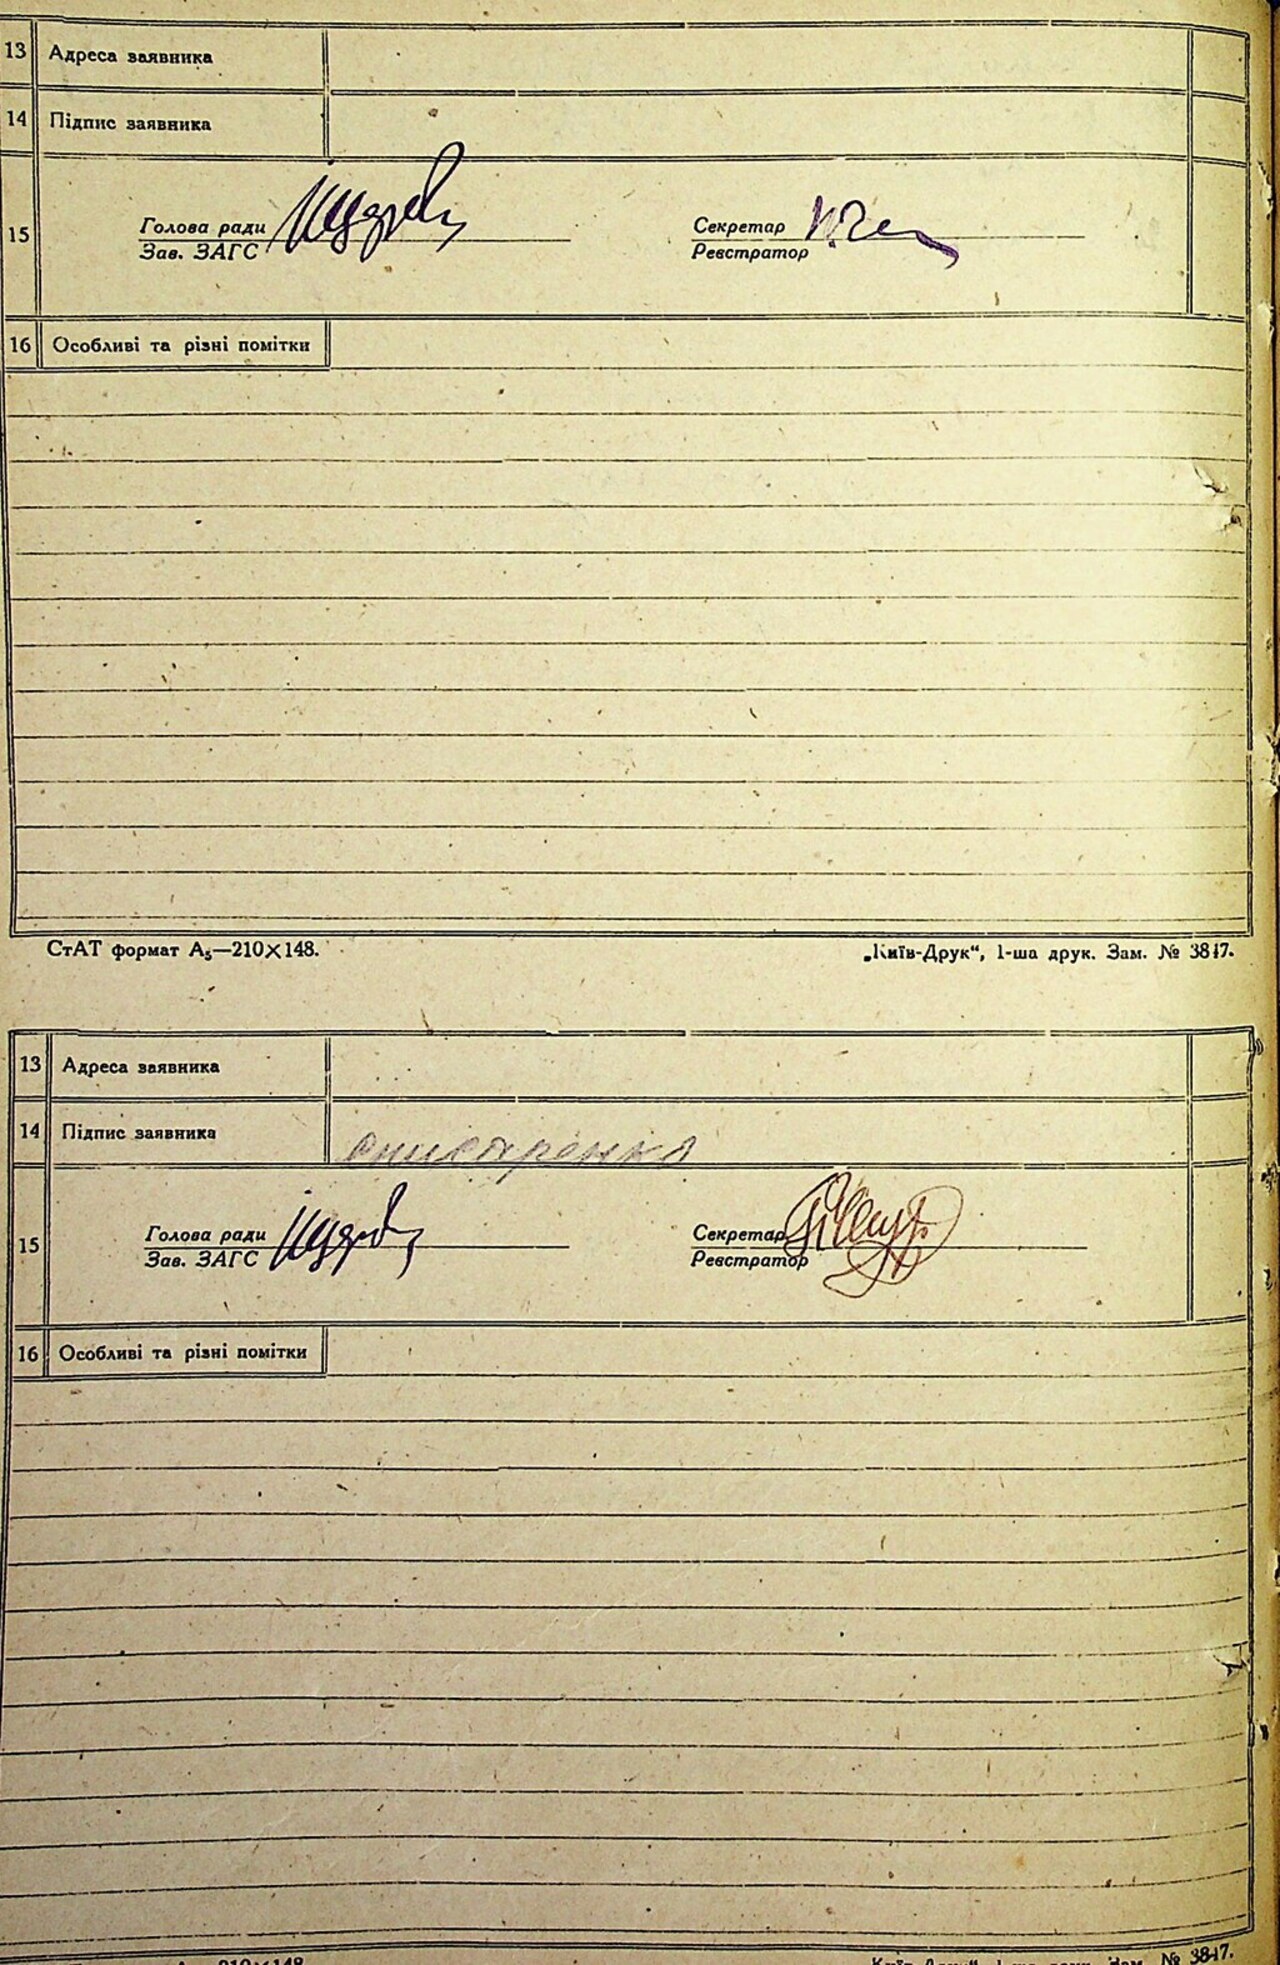 13 Адреса заявника
14 Підпис заявника
15 Голова ради Секретар
Зав. ЗАГС Реєстратор
16 Особливі та різні помітки
СтАТ формат А₅—210×148. „Київ-Друк“, 1-ша друк. Зам. № 3847.
13 Адреса заявника
14 Підпис заявника
15 Голова ради Секретар
Зав. ЗАГС Реєстратор
16 Особливі та різні помітки
210×148 Київ-Друк“, 1-ша друк. Зам. № 3847.